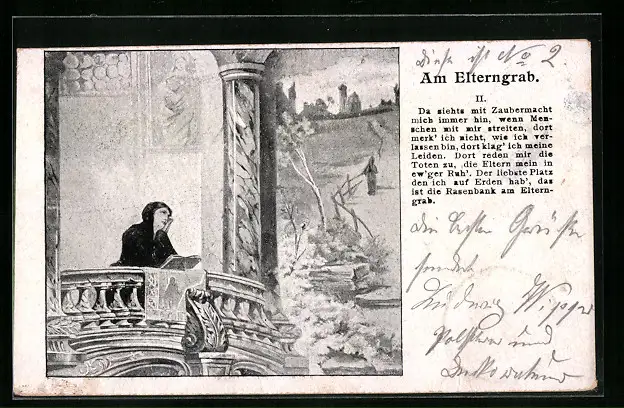 Diese ist No 2.
Am Elterngrab.
II.
Da siehts mit Zaubermacht
mich immer hin, wenn Men-
schen mit mir streiten, dort
merk' ich nicht, wie ich ver-
lassen bin, dort klag' ich meine
Leiden. Dort reden mir die
Toten zu, die Eltern mein in
ew'ger Ruh'. Der liebste Platz
den ich auf Erden hab', das
ist die Rasenbank am Eltern-
grab.
Die besten Grüße
sendet
Ludwig
und